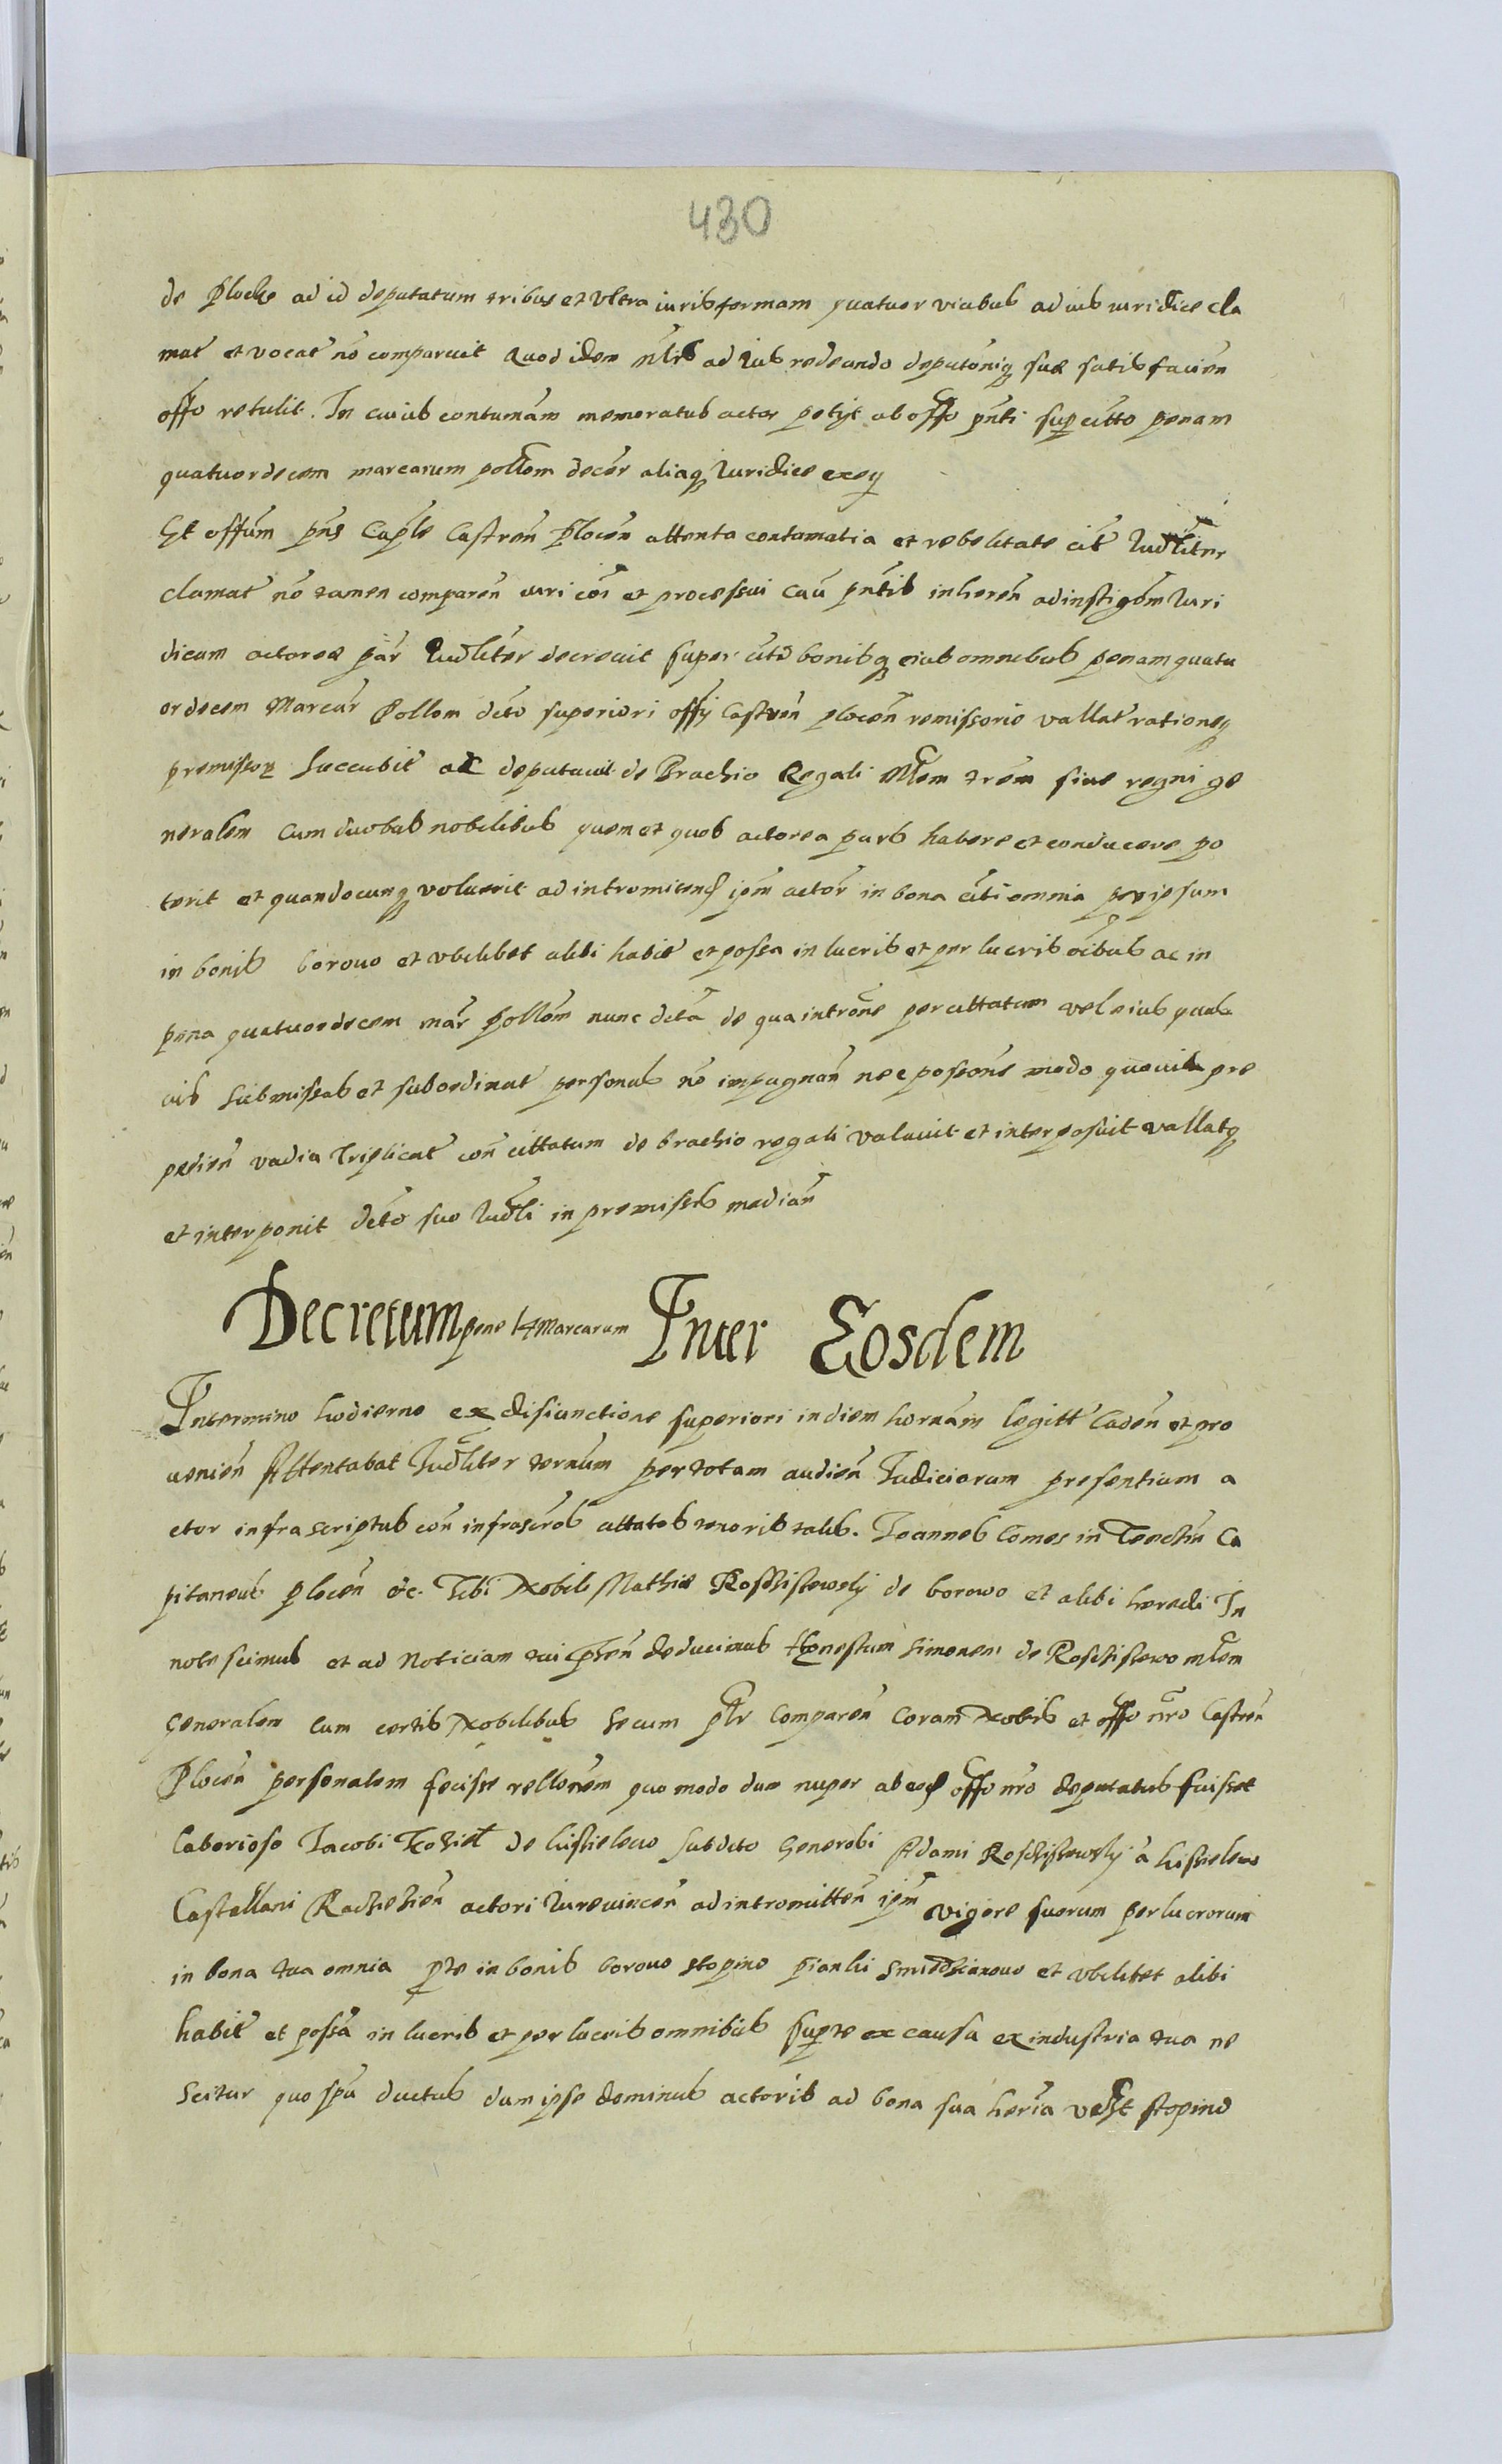 430
de Plocko ad id deputatum tribus et vltra iuris formam quatuor vicibus ad ius iuridice cla
mat et vocat no comparuit Quod idem mlis ad Ius redeundo deputoniq sue satis facien
offo retulit. In cuius contumam memoratus actor petijt ab offo pnti super citto penam
quatuordecem marcarum pollem decer aliaq Iuridice exeq
Et offum pns Caple Castren Plocen attenta contumatia et rebelitate cit Iudliter
clamat no tamen comparen iuri coi et processui cau pntis inheren ad instigom Iuri
dicam actorea par Iudliter decreuit super citd bonibq eius omnibus penam quatu
ordecem Marcar Pollem deto superiori offij Castren plocen remissorio vallat rationeq
premissor succubit ac deputauit de Brachio Regali Mlem trem siue regni ge
neralem cum duobus nobilibus quem et quos actorea pars habere et conducere po
terit et quandocunq voluerit ad intromitend ipm actor in bona citi omnia per ipsum
in bonis borouo et vbilibet alibi habit et possa in lucris et per lucris oibus ac in
pena quatuordecem mar Pollem nunc deta de qua introne per cittatum vel eius quas
uis submissas et subordinat personas no impugnan nec possone modo quouis pre
pedien vadia triplicat con cittatum de brachio regali valauit et interposuit vallatq
et interponit deto suo Iudli in premissis median
Decretum pene 14 Marcarum Inter Eosdem
In termino hodierno ex disiunctione superiori in diem hornam legitt Caden et pro
uenien Attentabat Iudliter ternum per totam audien Iudiciorum presentium a
ctor infrascriptus con infrascrob cittatob tenoris talis. Ioannes Comes in Tenchin Ca
pitaneus plocen etc. Tibi Nobili Mathie Rosczistewsky de borowo et alibi heredi In
notescimus et ad Noticiam tui Pten deducimus Honestum Simonem de Rosczistewo mlem
Generalem cum certis Nobilibus secum plr comparen Coram Nobis et offo nro Castren
Plocen personalem fecisse rellonem quo modo dum nuper ab eod offo nro deputatus fuisset
Laborioso Iacobi de subdto Generosi Adami Rosczistewsky a
Castellani actori Iurevincen ad intromitten ipm vigore suorum perlucrorum
in bona tua omnia pte in bonis borouo stopino pianki et vbilibet alibi
habit et possa in lucris et per lucris omnibus supte ex causa ex industria tua ne
scitur quo spu ductus dum ipse dominus actoris ad bona sua heria stopino